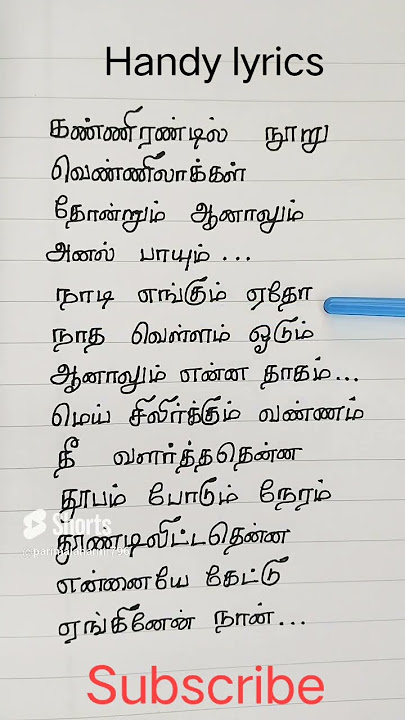 Handy lyrics
கண்ணிரண்டில் நூறு
வெண்ணிலாக்கள்
தோன்றும் ஆனாலும்
அனல் பாயும் ...
நாடி எங்கும் ஏதோ
நாத வெள்ளம் ஓடும்
ஆனாலும் என்ன தாகம்...
மெய் சிலிர்க்கும் வண்ணம்
தீ வளர்த்ததென்ன
தூபம் போடும் நேரம்
Shorts
தூண்டிவிட்டதென்ன
என்னையே கேட்டு
ஏங்கினேன் நான்...
Subscribe